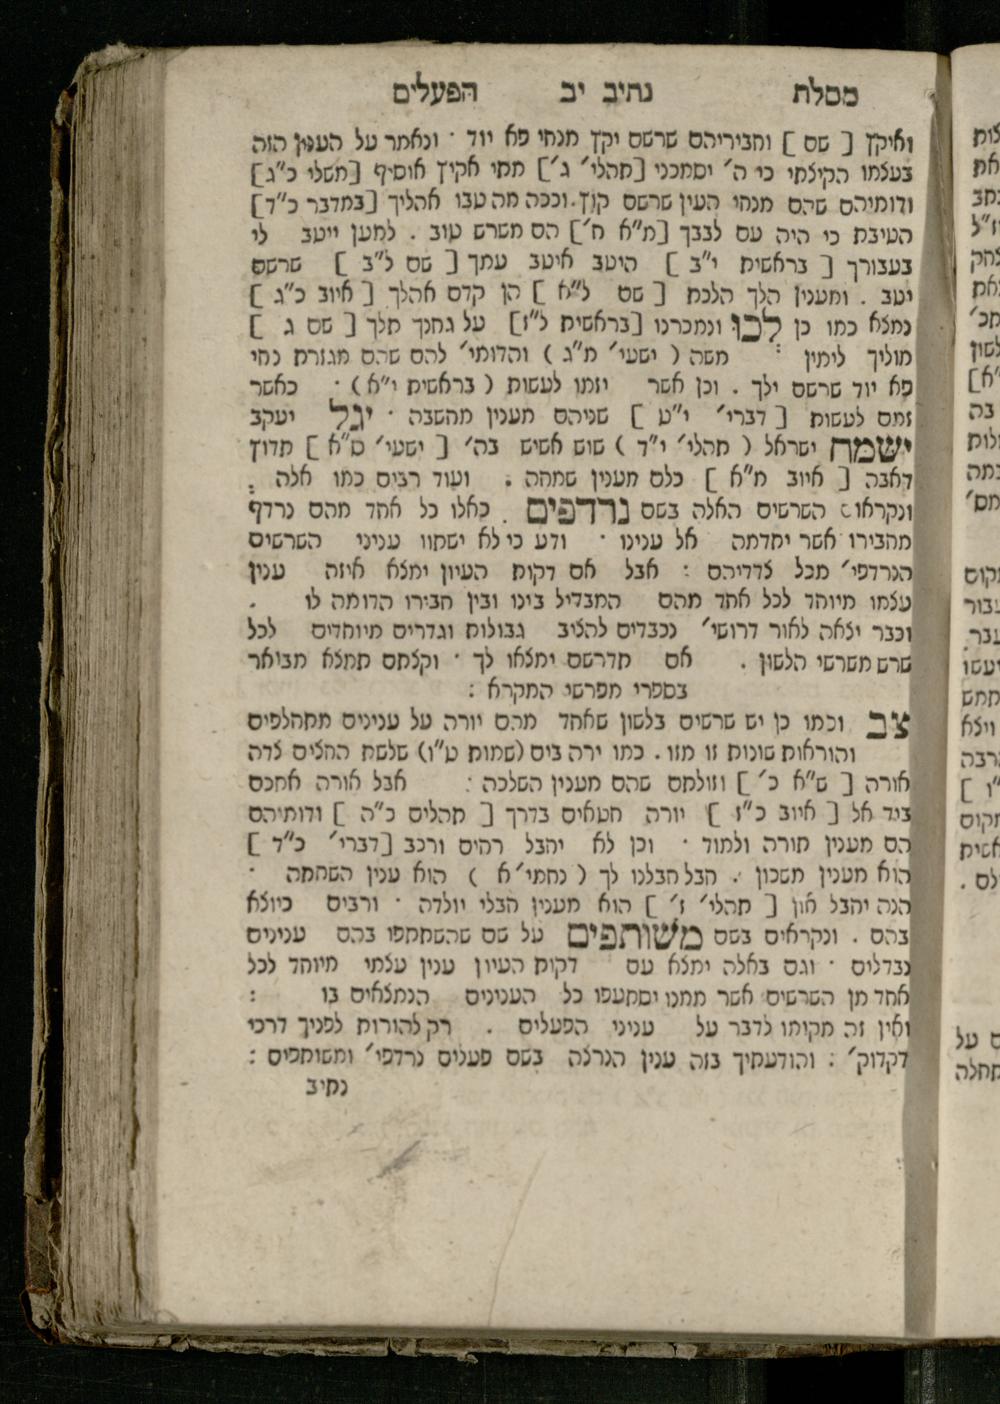 מסלת נתיב יב הפעלים
ואיקץ [ שם ] ומבריריהם שרשם יקץ מנחי פא יוד · ונאמר על הענין הזה
בעצמו הקיצתי כי ה׳ יסמכני [תהלי׳ ג׳] מתי אקיץ אוסיף [משלי כ״ג]
ודומיהם שהם מנחי העין שרשם קוץ. וככה מה טבו אהליך [במדבר כ״ד]
הטיבת כי היה עם לבבך [מ״א ח׳] הם משרש טוב . למען ייטב לי
בעבורך [ בראשית י״ב ] היטב איטב עמך [ שם ל״ב ] שרשם
יטב . ומענין הלך הלכת [ שם ל״א ] הן קדם אהלך [ איוב כ״ג ]
נמצא כמו כן לכו ונמכרנו [בראשית ל״ז] על גחנך תלך [ שם ג ]
מוליך לימין משה ( ישעי׳ ס״ג ) והדומי׳ להם שהם מגזרת נחי
פא יוד שרשם ילך . וכן אשר יזמו לעשות ( בראשית י״א ) · כאשר
זמם לעשות [ דברי׳ י״ט ] שניהם מענין מחשבה · יגל יעקב
ישמח ישראל ( תהלי׳ י״ד ) שוש אשיש בה׳ [ ישעי׳ ס״א ] תדוץ
דאבה [ איוב מ״א ] כלם מענין שמחה . ועוד רבים כמו אלה :
ונקראו השרשים האלה בשם נרדפים . כאלו כל אחד מהם נרדף
מחבירו אשר יתדמה אל ענינו · ודע כי לא ישתוו עניני השרשים
הנרדפי׳ מכל צדדיהם : אבל אם דקות העיון ימצא איזה ענין
עצמו מיוחד לכל אחד מהם המבדיל בינו ובין חבירו הדומה לו .
וכבר יצאה לאור דרושי׳ נכבדים להציב גבולות וגדרים מיוחדים לכל
שרש משרשי הלשון . אם תדרשם ימצאו לך · וקצתם תמצא מבואר
בספרי מפרשי המקרא :
צב וכמו כן יש שרשים בלשון שאחד מהם יורה על ענינים מתחלפים
והוראות שונות זו מזו . כמו ירה בים (שמות ט״ו) שלשת החצים צדה
אורה [ ש״א כ׳ ] וזולתם שהם מענין השלכה : אבל אורה אתכם
ביד אל [ איוב כ״ז ] יורה חטאים בדרך [ תהלים כ״ה ] ודומיהם
הם מענין תורה ולמוד · וכן לא יחבל רחים ורכב [דברי׳ כ״ד ]
הוא מענין משכון . חבל חבלנו לך ( נחמי׳ א ) הוא ענין השחתה ·
הנה יחבל און [ תהלי׳ ז׳ ] הוא מענין חבלי יולדה · ורבים כיוצא
בהם . ונקראים בשם משותפים על שם שהשתתפו בהם ענינים
נבדלים · וגם באלה ימצא עם דקות העיון ענין עצמי מיוחד לכל
אחד מן השרשים אשר ממנו יסתעפו כל הענינים הנמצאים בו :
ואין זה מקומו לדבר על עניני הפעלים . רק להורות לפניך דרכי
דקדוק׳ : והודעתיך בזה ענין הנרצה בשם פעלים נרדפי׳ ומשותפים :
נתיב